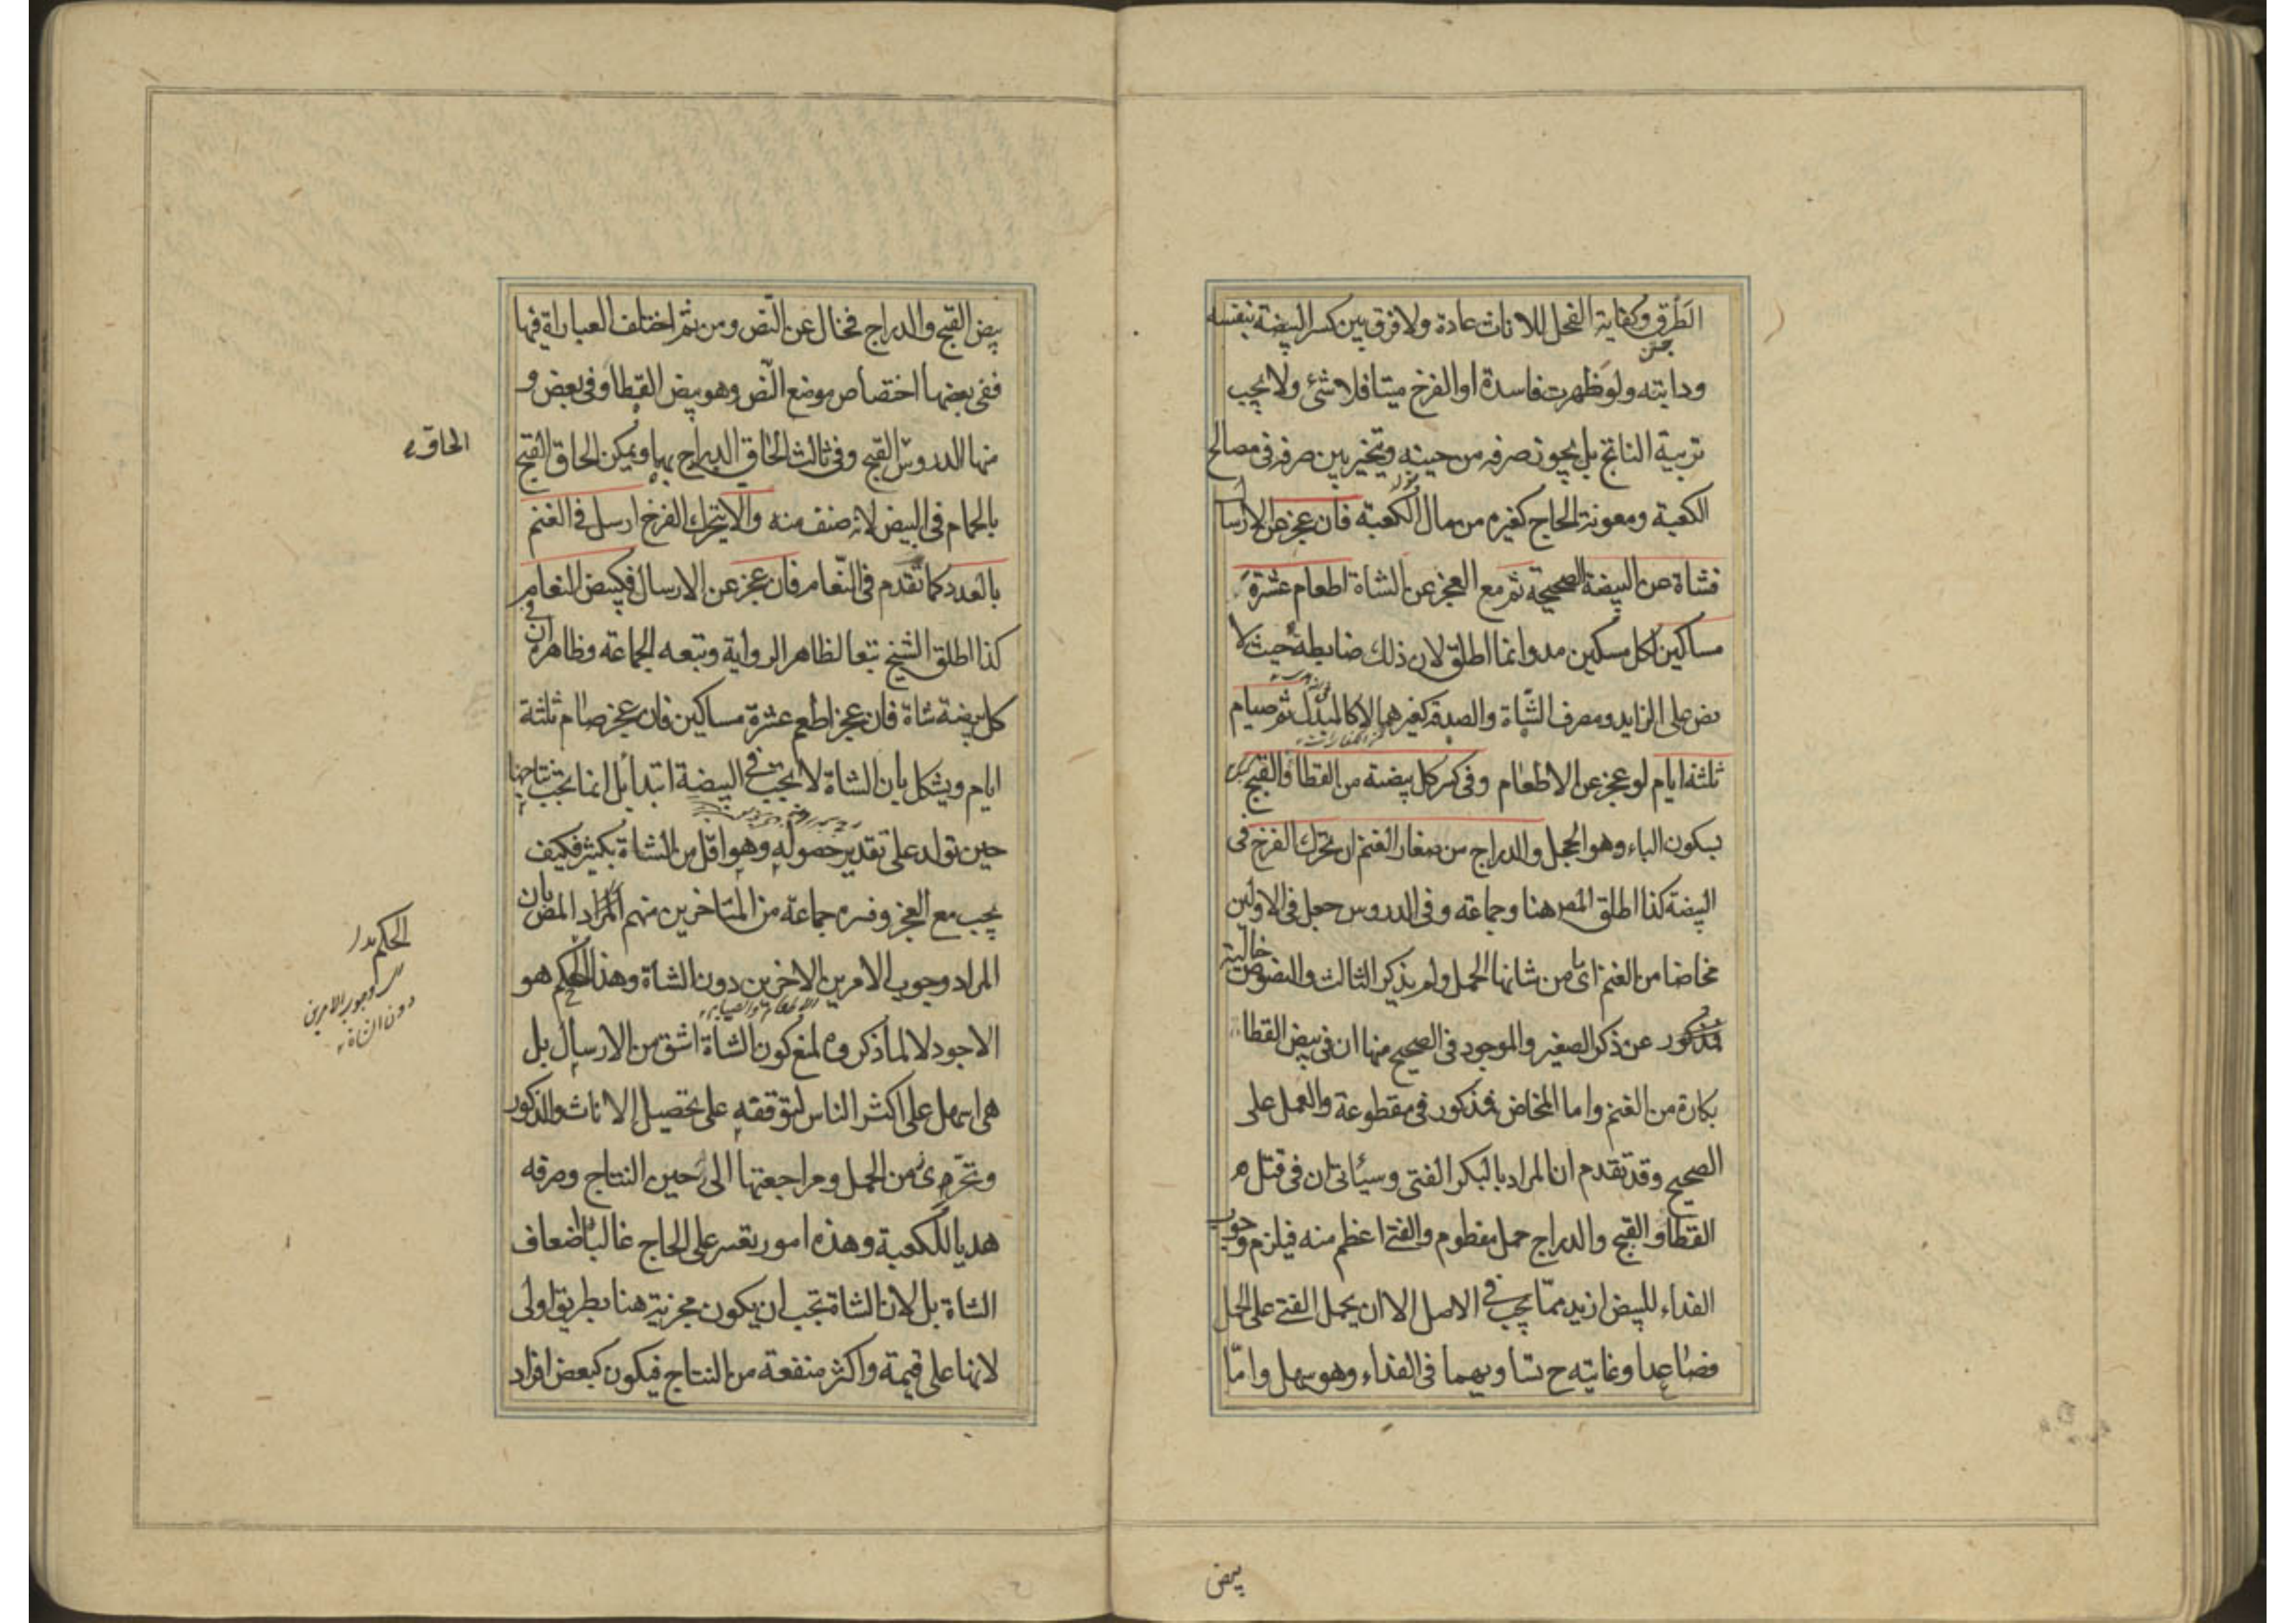 الطرق وكفاية الفحل للاناث عادة ولا فرق بين كسر البيضة بنفسه
ودابته ولو ظهرت فاسدة او الفرخ ميتا فلا شئ ولا يجب
تربية الناتج بل يجوز صرفه من حينه ويتخير بين صرفه فى مصالح
الكعبة ومعونة الحاج كغيره من مال الكعبة فان عجز عن الارسال
فشاة عن البيضة الصحيحة ثم مع العجز عن الشاة اطعام عشرة
مساكين لكل مسكين مد وانما اطلق لان ذلك ضابطه حيث لا
نص على الزايد ومصرف الشاة والصدقة كغيرهما لا كالمبدل ثم صيام
ثلثة ايام لو عجز عن الاطعام وفى كسر كل بيضة من القطا والقبج
بسكون الباء وهو الحجل والدراج من صغار الغنم ان تحرك الفرخ فى
البيضة كذا اطلق المص هنا وجماعة وفى الدروس جعل فى الاولين
مخاضا من الغنم اى من شانها الحمل ولم يذكر الثالث والنصوص خالية
عن ذكر الصغير والموجود فى الصحيح منها ان فى بيض القطا
بكارة من الغنم واما المخاض فمذكور فى مقطوعة والعمل على
الصحيح وقد تقدم ان المراد بالبكر الفتى وسيأتى ان فى قتل
القطا والقبج والدراج حمل مفطوم والفتى اعظم منه فيلزم وجوب
الفداء للبيض ازيد مما يجب فى الاصل الا ان يحمل الفتى على الحمل
فصاعدا وغايته ح تساويهما فى الفداء وهو سهل واما
بيض
بيض القبج والدراج فخال عن النص ومن ثم اختلف العباراة فيها
ففى بعضها اختصاص موضع النص وهو بيض القطا وفى بعض و
منها الدروس القبج وفى ثالث الحاق الدراج بها ويمكن الحاق القبج
الحاق
بالحمام فى البيض لانه صنف منه والا يتحرك الفرخ ارسل فى الغنم
بالعدد كما تقدم فى النعام فان عجز عن الارسال فكبيض النعام
كذا اطلق الشيخ تبعا لظاهر الرواية وتبعه الجماعة وظاهره ان فى
كل بيضة شاة فان عجز اطعم عشرة مساكين فان عجز صام ثلثة
ايام ويشكل بان الشاة لا تجب فى البيضة ابتداء بل انما يجب نتاجها
حين تولد على تقدير حصوله وهو اقل من الشاة بكثير فكيف
يجب مع العجز وفسره جماعة من المتاخرين منهم المص بان
المراد وجوب الامرين الاخرين دون الشاة وهذا الحكم هو
الاطعام والصيام
الاجود لا لما ذكروه لمنع كون الشاة اشق من الارسال بل
هى اسهل على اكثر الناس لتوققفه على تحصيل الاناث والذكور
وتحرى زمن الحمل ومراجعتها الى حين النتاج وصرفه
هديا للكعبة وهذه امور يعسر على الحاج غالبا اضعاف
الشاة بل لان الشاة تجب ان يكون مجزية هنا بطريق اولى
لانها على قيمة واكثر منفعة من النتاج فيكون كبعض افراد
الحكم
وجوب الامرين
دون الشاة